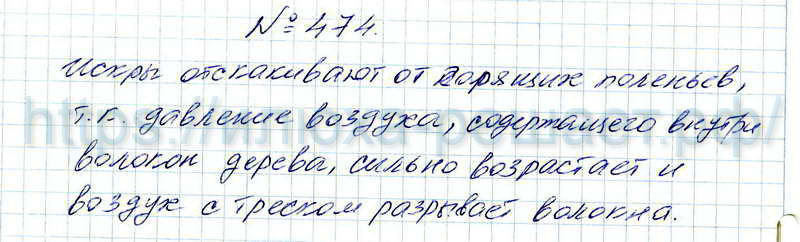 № 474.
Искры отскакивают от горящих поленьев,
т.к. давление воздуха, содержащего внутри
волокон дерева, сильно возрастает и
воздух с треском разрывает волокна.